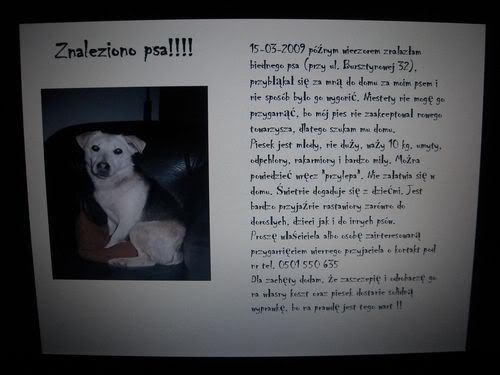 Znaleziono psa!!!!
15-03-2009 późnym wieczorem znalazłam
biednego psa (przy ul. Bursztynowej 32),
przybłąkał się za mną do domu za moim psem i
nie sposób było go wygonić. Niestety nie mogę go
przygarnąć, bo mój pies nie zaakceptował nowego
towarzysza, dlatego szukam mu domu.
Piesek jest młody, nie duży, waży 10 kg, umyty,
odpchlony, nakarmiony i bardzo miły. Można
powiedzieć wręcz "przylepa". Nie załatwia się w
domu. Świetnie dogaduje się z dziećmi. Jest
bardzo przyjaźnie nastawiony zarówno do
dorosłych, dzieci jak i do innych psów.
Proszę właściciela albo osobę zainteresowaną
przygarnięciem wiernego przyjaciela o kontakt pod
nr tel. 0501 550 635
Dla zachęty dodam, że zaszczepię i odrobaczę go
na własny koszt oraz piesek dostanie solidną
wyprawkę, bo na prawdę jest tego wart !!